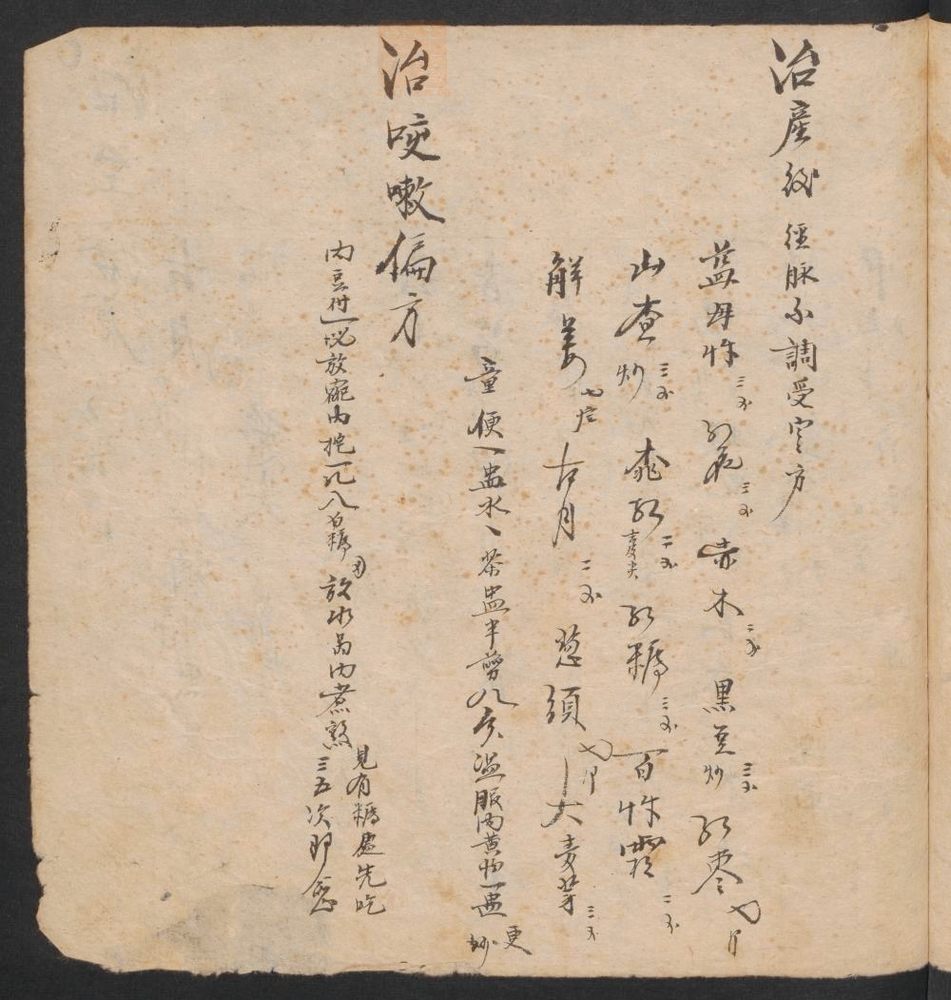 治産後 經脉不調受寒方
益母草 三分 紅花 三分 赤木 二分 黒豆炒 三分 紅枣 七个
山查炒 三分 桃红 二分 紅糖 三分 百草霜 二分
鮮姜 七片 古月 二分 葱須 七个 大麦芽 三分
童便一盅水一茶盅半剪八分温服内黄酒一盅更妙
治咳嗽偏方
内豆付一塊放碗内挖一孔入白糖 放水鍋内煮熟
見有糖處先吃三五次即愈